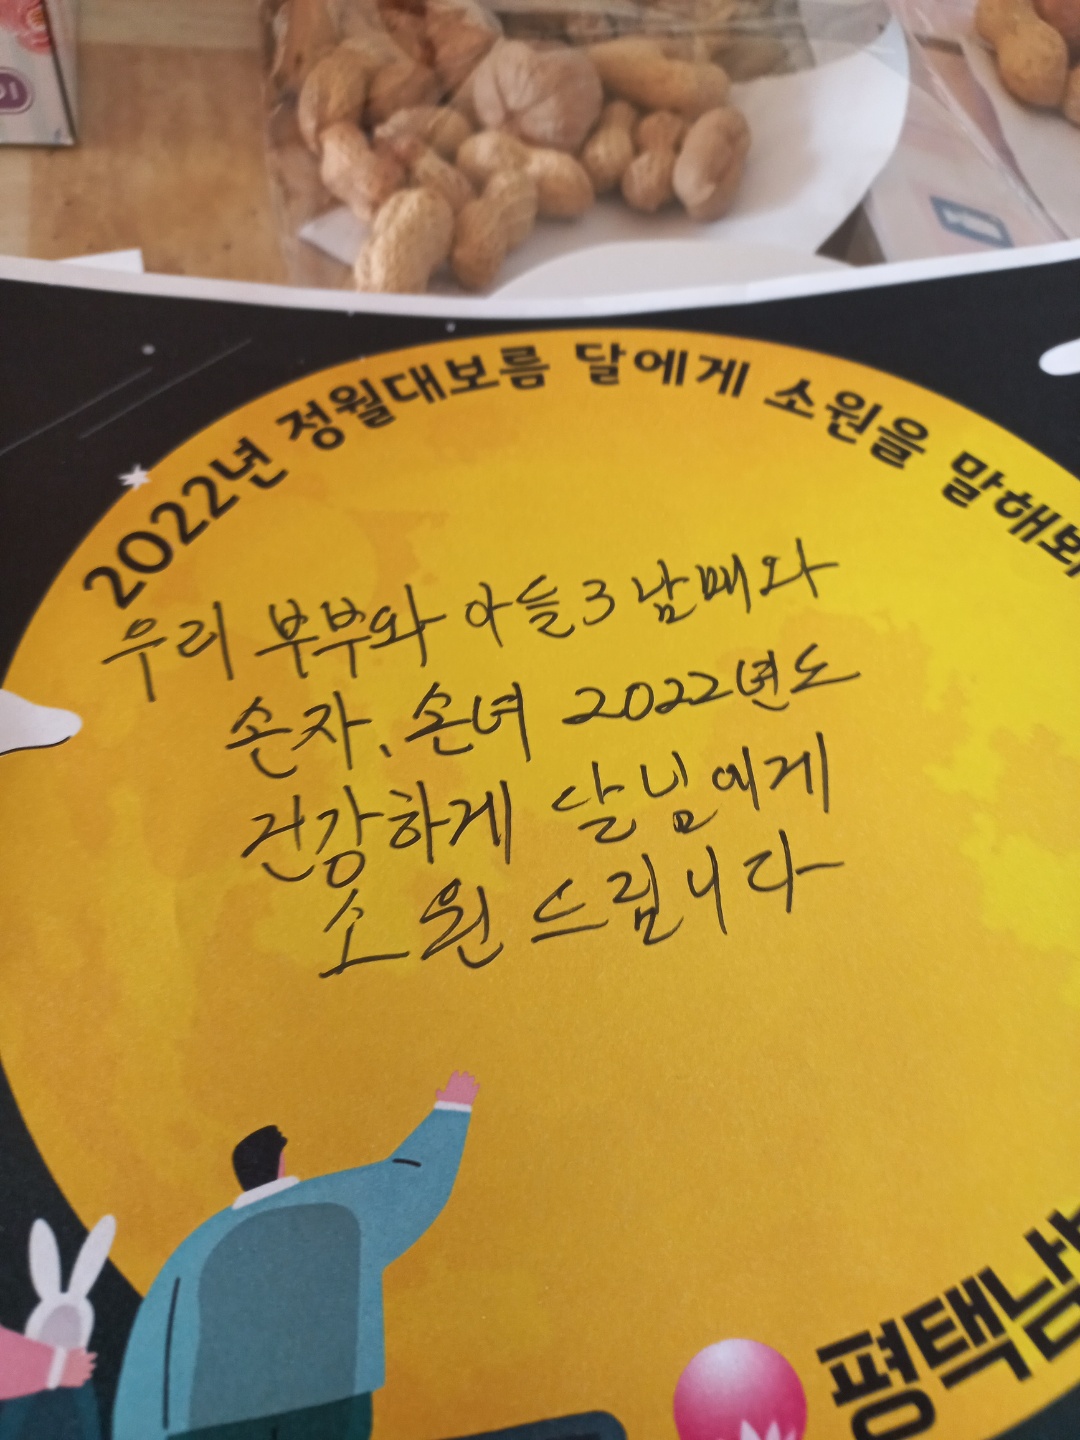 2022년 정월대보름 달에게 소원을 말해봐
우리 부부와 아들3남매와
손자、손녀 2022년도
건강하게 달님에게
소원드립니다
평택남